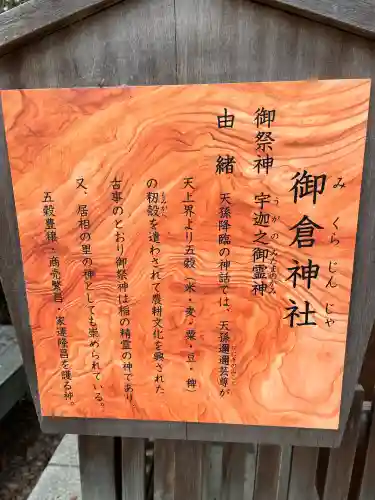 御倉神社
みくらじんじゃ
御祭神 宇迦之御霊神
うがのみたまのかみ
由緒
天孫降臨の神話では、天孫邇邇芸尊が
ににぎのみこと
天上界より五穀(米・麦・粟・豆・稗)
の籾殻を遣わされて農耕文化を興された
もみがら
古事のとおり御祭神は稲の精霊の神であり
又、居相の里の神としても崇められている。
五穀豊穣・商売繁昌・家運隆昌を護る神。